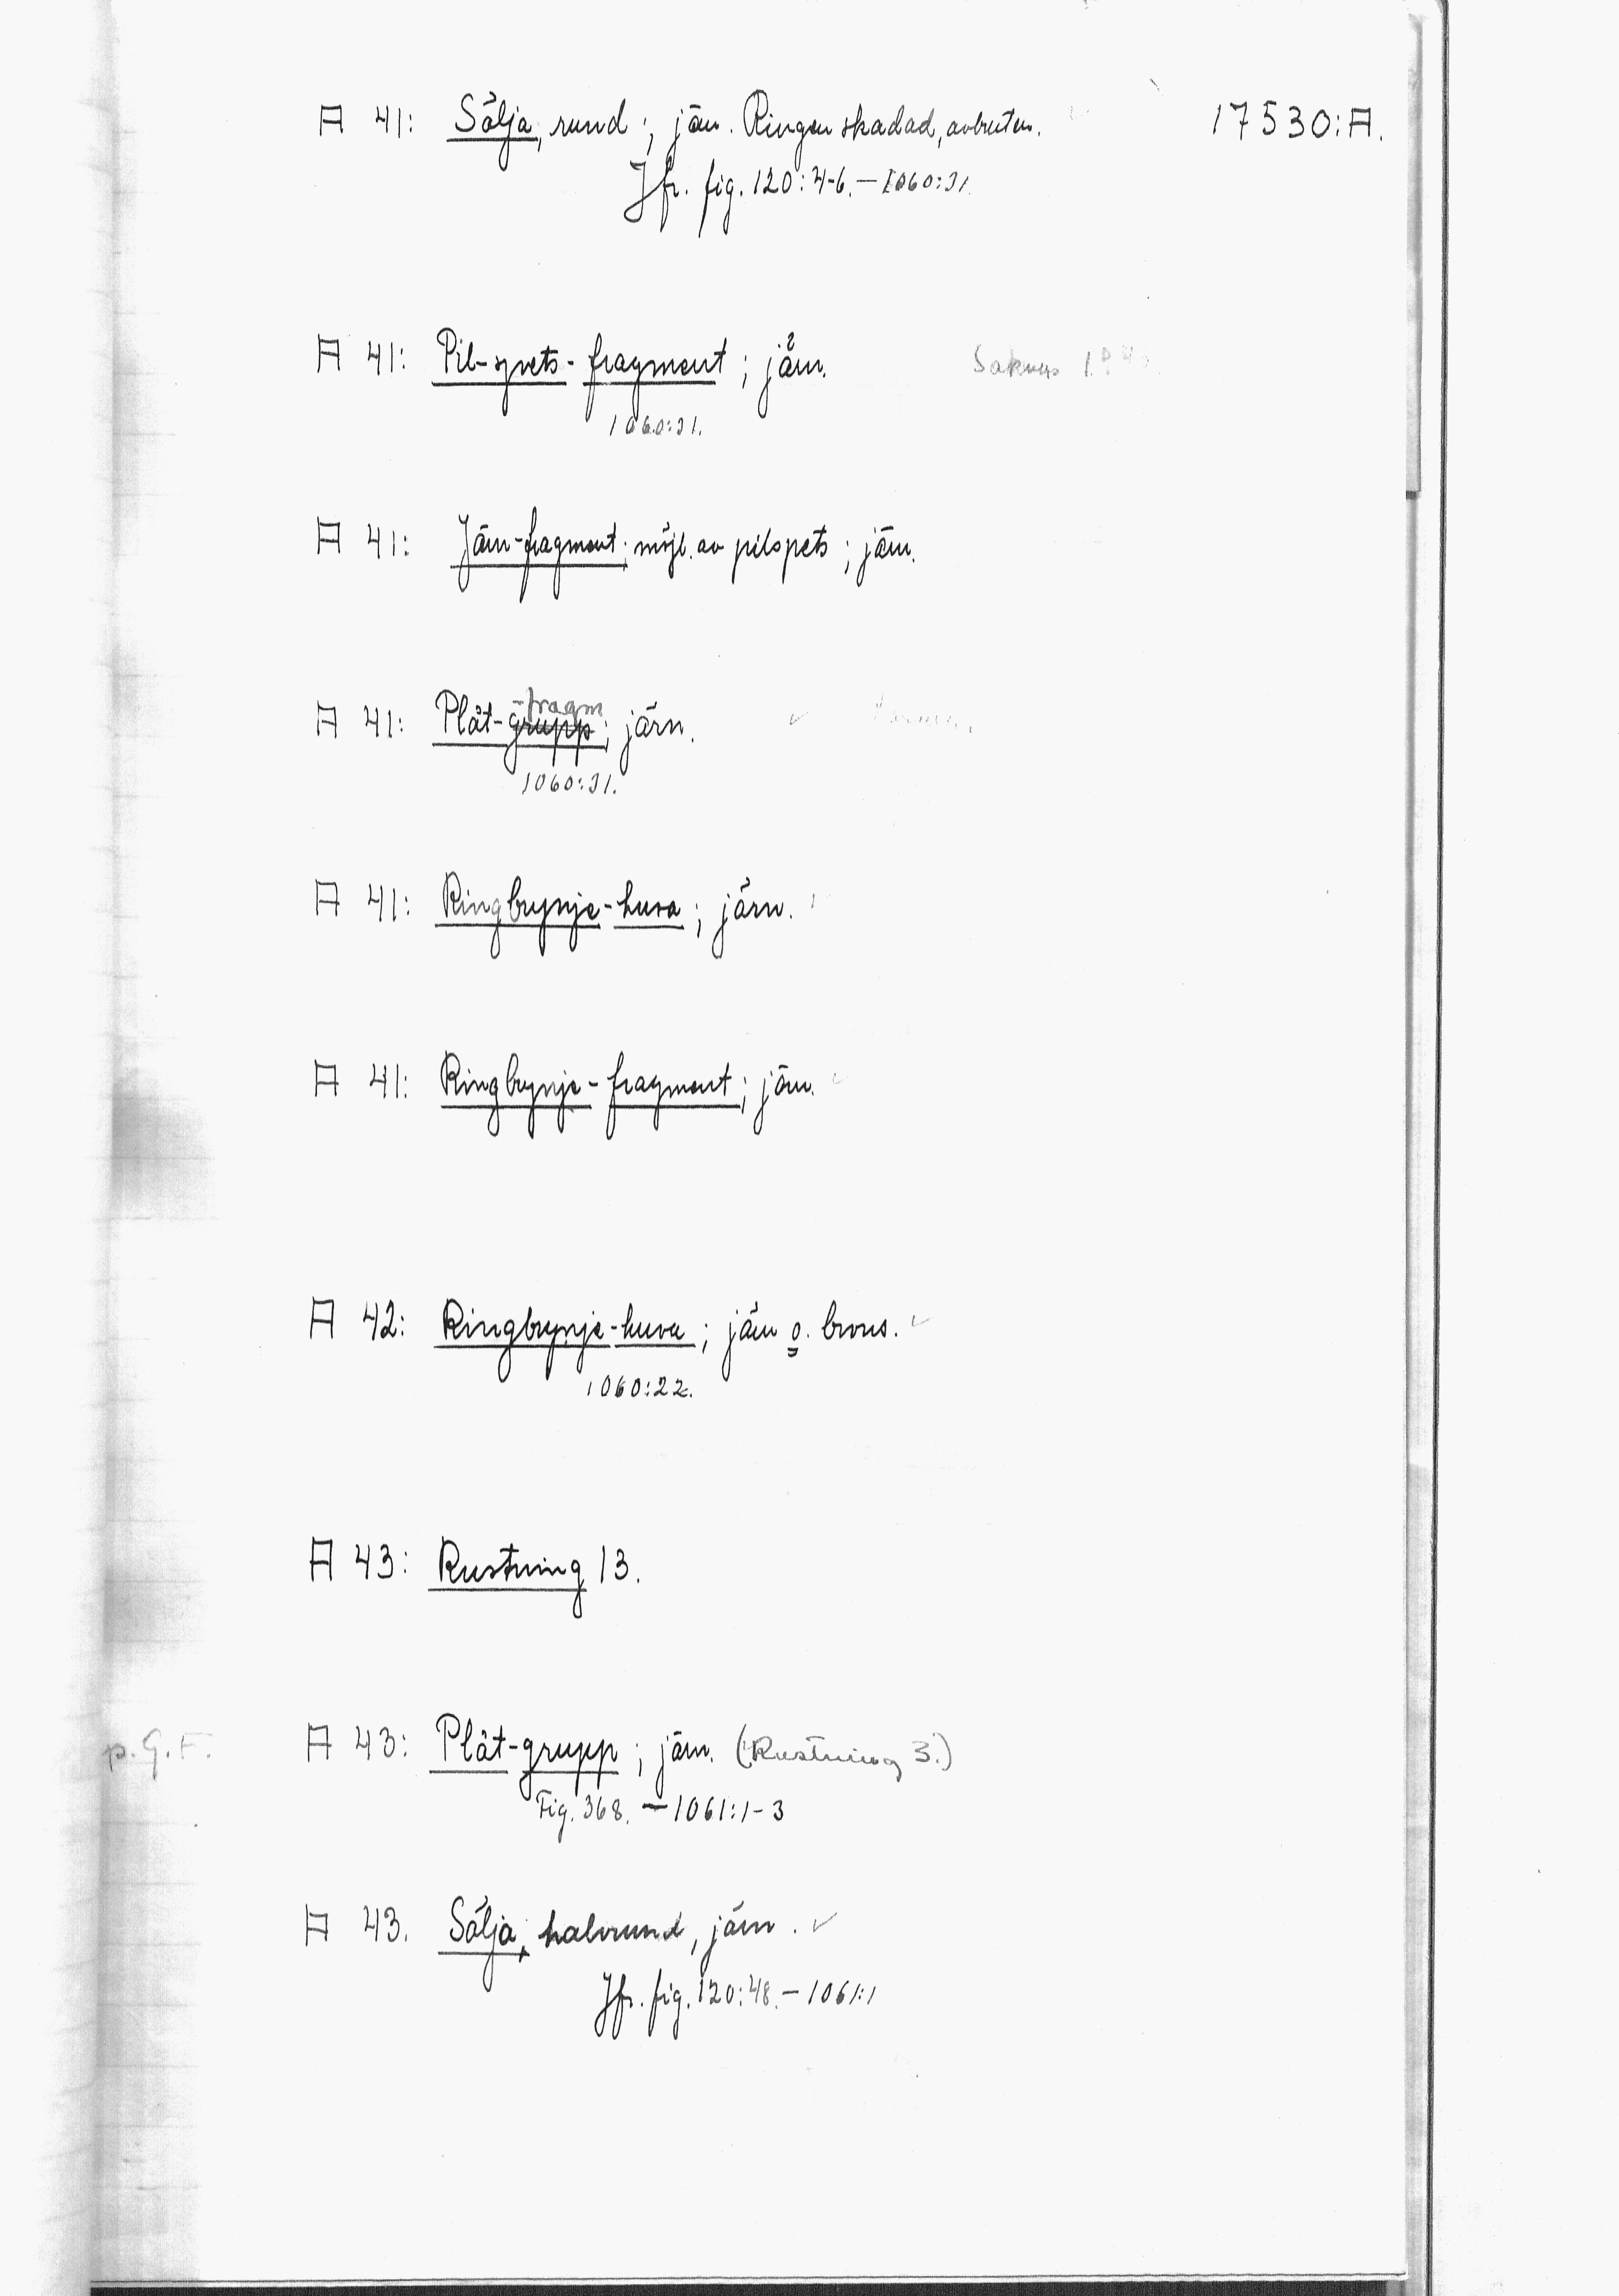 A 41: Sölja, rund; järn. Ringen skadad, avbruten. 17530:A.
Jfr. fig. 120:4-6. — 1060:31.
A 41: Pil-spets-fragment; järn. Saknas
1060:31.
A 41: Järn-fragment; möjl. av pilspets; järn.
-fragm
A 41: Plåt-grupp; järn. ✓
1060:31.
A 41: Ringbrynje-huva; järn.
A 41: Ringbrynje-fragment; järn.
A 42: Ringbrynje-huva; järn o. brons. ✓
1060:22.
A 43: Rustning 13.
p.G.F. A 43: Plåt-grupp; järn. (Rustning 3.)
Fig. 368. — 1061:1-3
A 43. Sölja, halvrund, järn. ✓
Jfr. fig. 120:48. — 1061:1